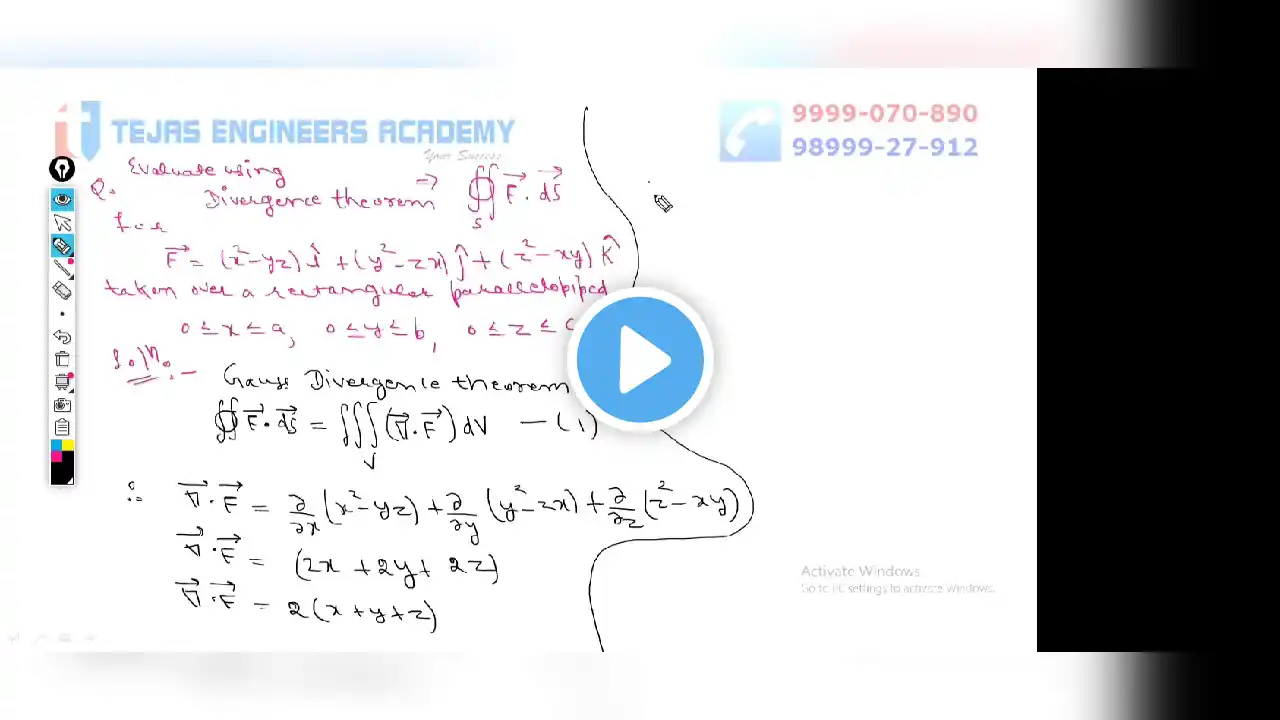 TEJAS ENGINEERS ACADEMY
Your Success
9999-070-890
98999-27-912
Q. Evaluate using
Divergence theorem ⇒ ∯_S F⃗ · dS⃗
for
F⃗ = (x²-yz) î + (y²-zx) ĵ + (z²-xy) K̂
taken over a rectangular parallelopiped
0 ≤ x ≤ a, 0 ≤ y ≤ b, 0 ≤ z ≤ c
Soln:-
Gauss Divergence theorem
∯ F⃗ · dS⃗ = ∭_V (∇⃗ · F⃗) dV — (1)
∴ ∇⃗ · F⃗ = ∂/∂x (x²-yz) + ∂/∂y (y²-zx) + ∂/∂z (z²-xy)
∇⃗ · F⃗ = (2x + 2y + 2z)
∇⃗ · F⃗ = 2(x+y+z)
Activate Windows
Go to PC settings to activate Windows.